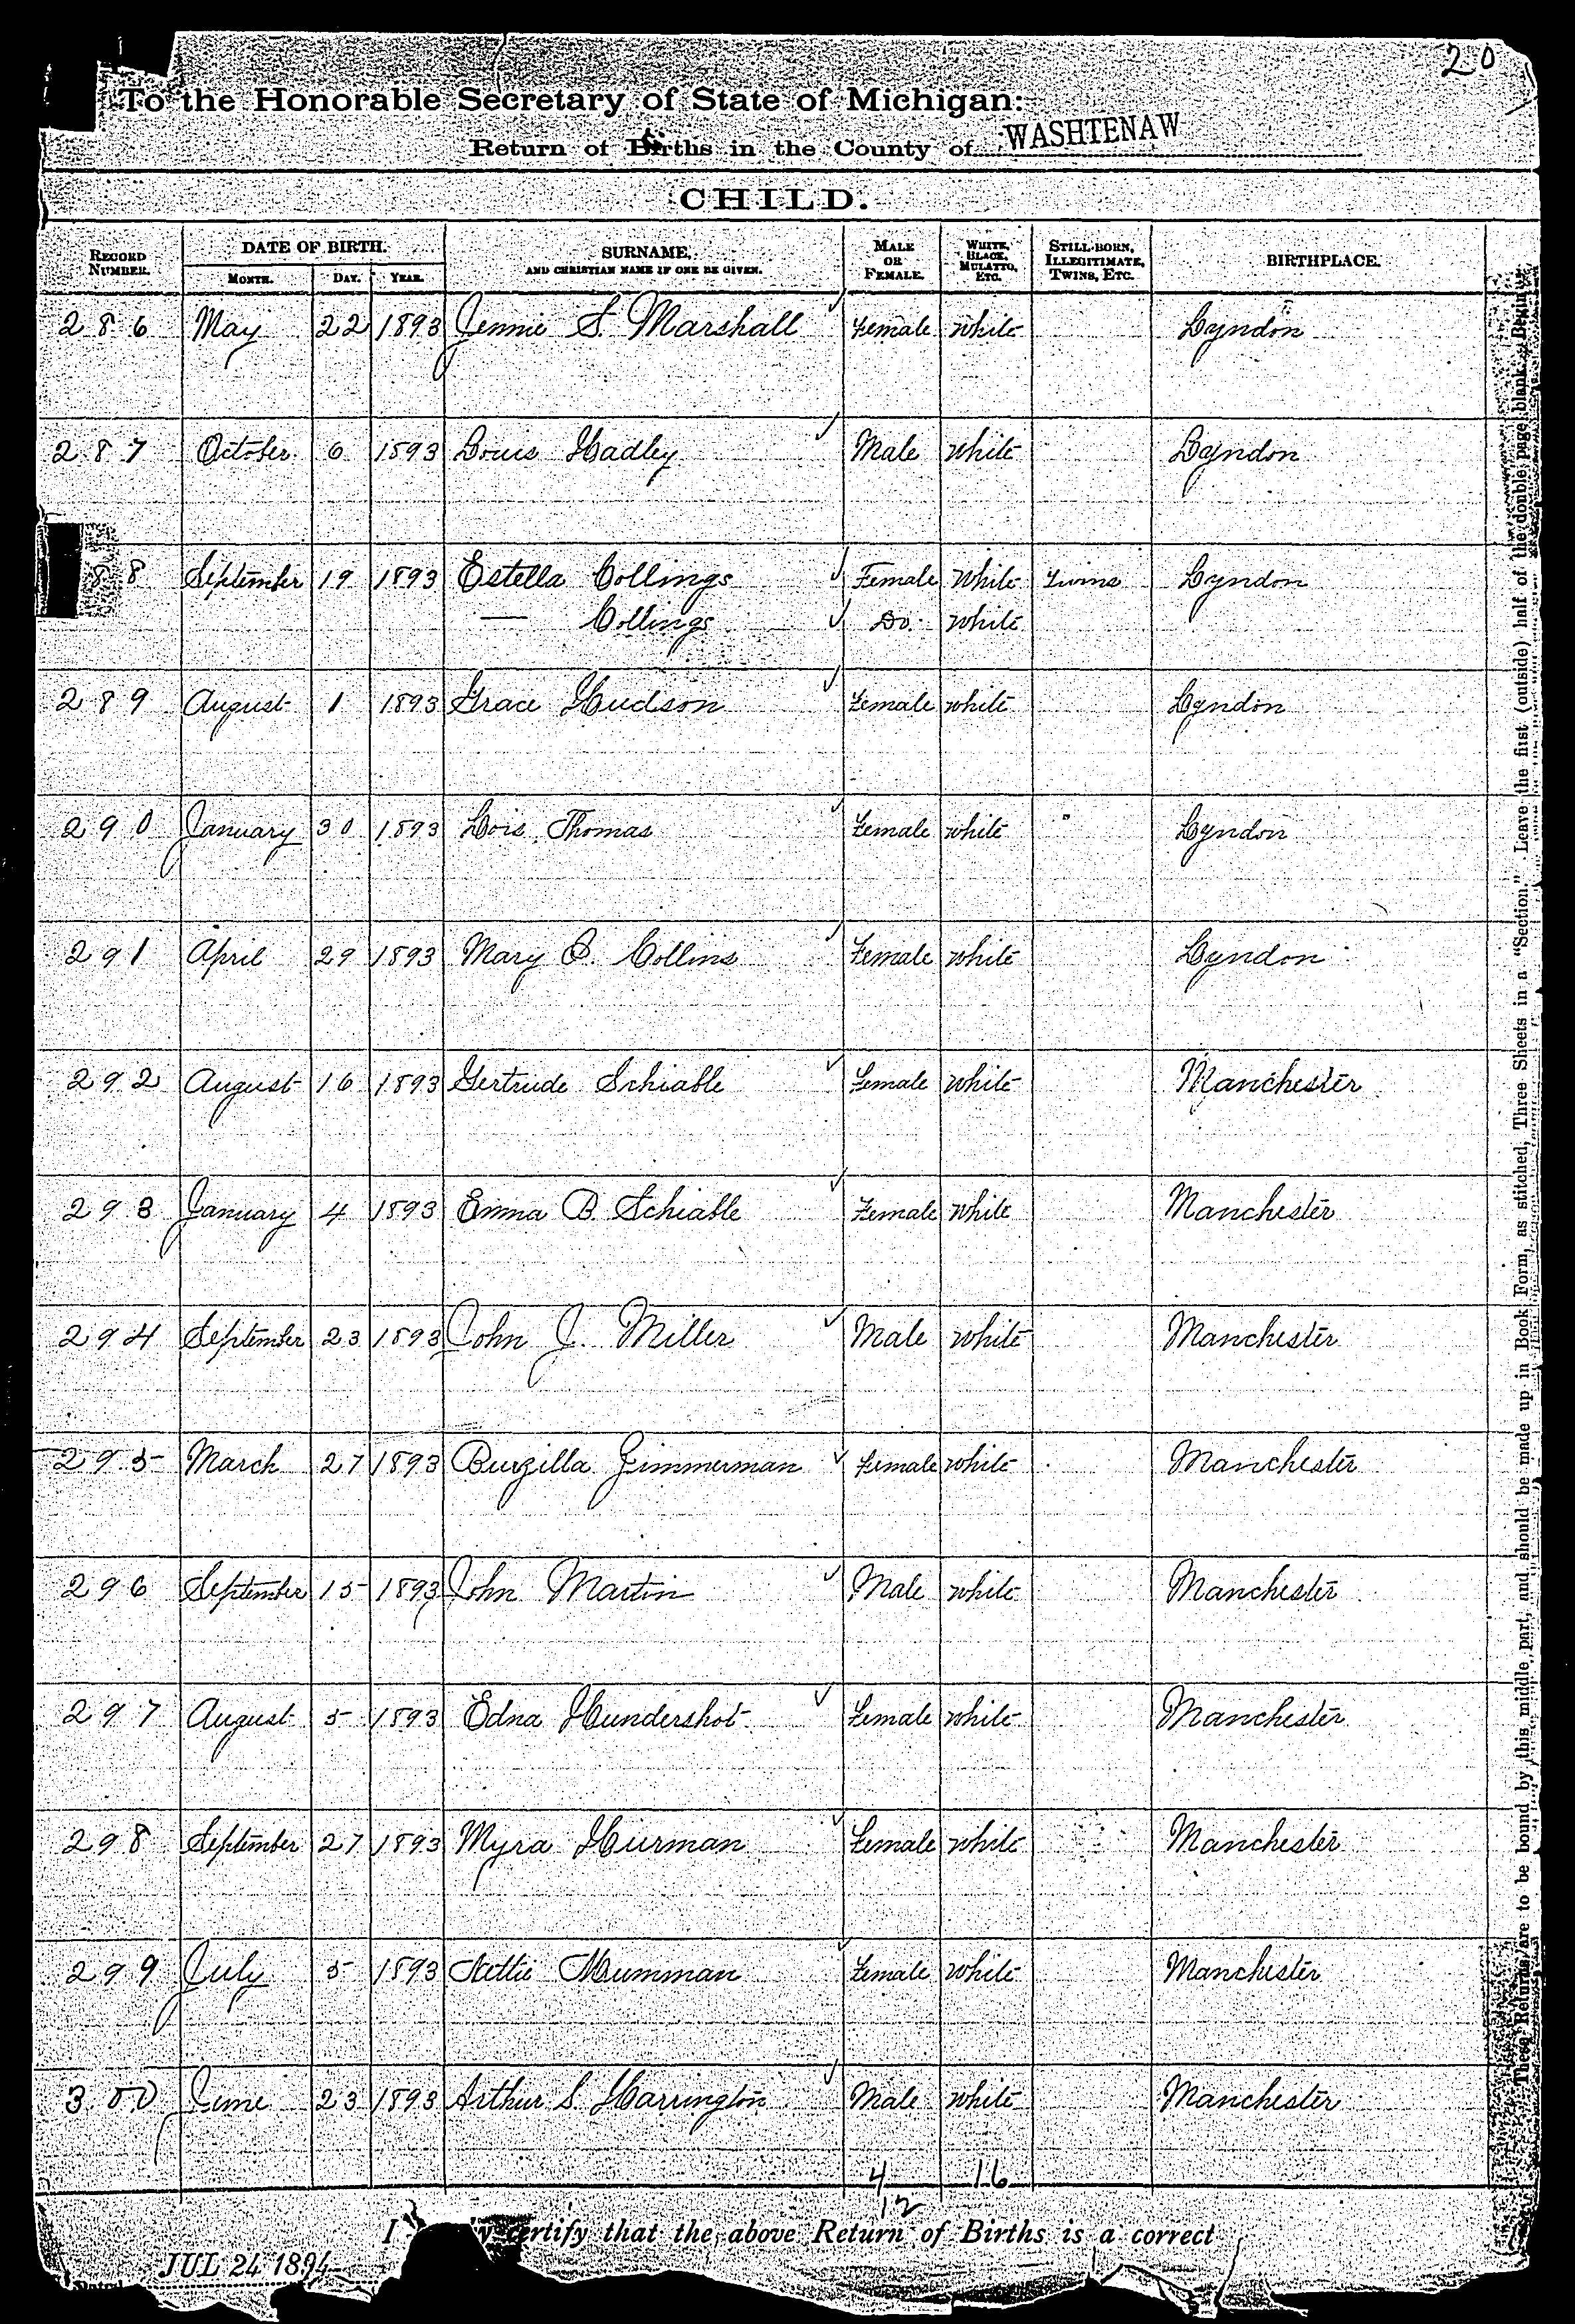 20
To the Honorable Secretary of State of Michigan:
Return of Births in the County of WASHTENAW
CHILD.
RECORD NUMBER. DATE OF BIRTH. MONTH. DAY. YEAR. SURNAME, AND CHRISTIAN NAME IF ONE BE GIVEN. MALE OR FEMALE. WHITE, BLACK, MULATTO, ETC. STILL-BORN, ILLEGITIMATE, TWINS, ETC. BIRTHPLACE.
286 May 22 1893 Jennie S. Marshall Female White Lyndon
287 October 6 1893 Louis Hadley Male White Lyndon
88 September 19 1893 Estella Collings Female White Twins Lyndon
— Collings Do. White
289 August 1 1893 Grace Hudson Female White Lyndon
290 January 30 1893 Lois Thomas Female White Lyndon
291 April 29 1893 Mary C. Collins Female White Lyndon
292 August 16 1893 Gertrude Schiable Female White Manchester
293 January 4 1893 Emma B. Schiable Female White Manchester
294 September 23 1893 John J. Miller Male White Manchester
295 March 27 1893 Burzilla Zimmerman Female White Manchester
296 September 15 1893 John Martin Male White Manchester
297 August 5 1893 Edna Hundershot Female White Manchester
298 September 27 1893 Myra Hurman Female White Manchester
299 July 5 1893 Nettie Mumman Female White Manchester
300 June 23 1893 Arthur S. Harrington Male White Manchester
4 16
12
I certify that the above Return of Births is a correct
JUL 24 1894
These Returns are to be bound by this middle part, and should be made up in Book Form, as stitched, Three Sheets in a "Section." Leave the first (outside) half of the double page blank. Begin